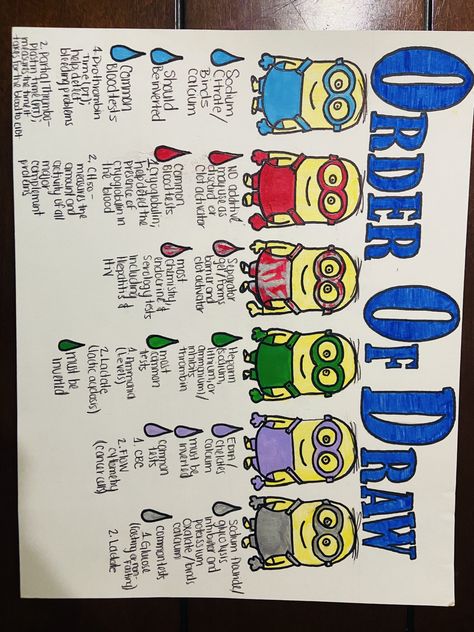 ORDER OF DRAW
Sodium
Citrate/
Birds
calcium
Should
Beinverted
Common
Bloodtests
1. Prothrombin
Time (PT)/
help detect
bleeding problems
2. Partial Thrombo-
plastin Time (PTT)/
measures the time it
takes for the blood to clot
NO additive,
may use as
discard or a
clot activator
Common
Bloodtests
1. cryoglobulin/
help detect the
presence of
cryoglobulin in
the blood
2. CH50 -
measures the
amount and
activity of all
major
complement
proteins
Separator
gel forms
barrier and
clot activator
most
chemistry,
endocrine &
serology tests
including
Hepatitis &
HIV
Heparin
(sodium,
lithium, or
ammonium)/
inhibits
thrombin
most
common
tests
1. Ammonia
(Levels)
2. Lactate
(lactic acidosis)
must be
inverted
EDTA/
chelates
calcium
must be
inverted
common
tests
1. CBC
2. Flow
cytometry
(cancer cells)
Sodium flouride/
glycolysis
inhibitor and
potassium
Oxalate/binds
calcium
common tests
1. Glucose
(fasting or non-
Fasting)
2. Lactate